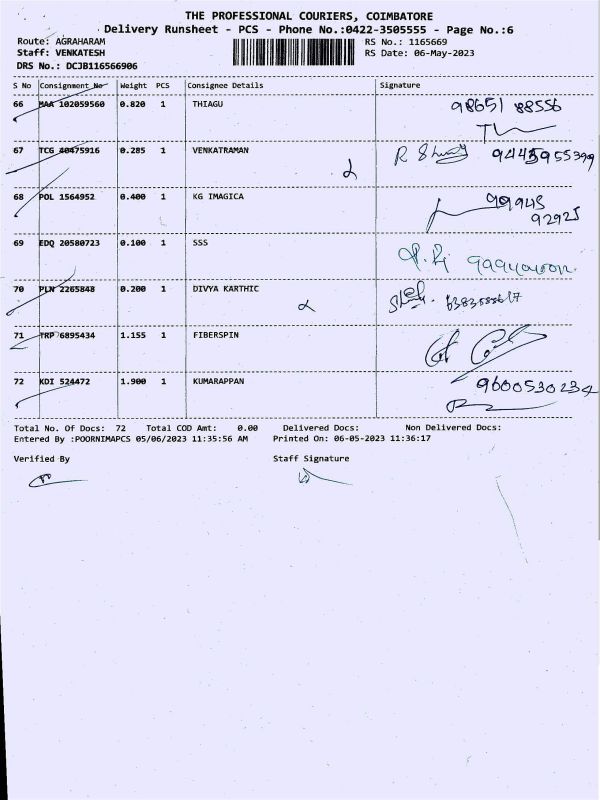 THE PROFESSIONAL COURIERS, COIMBATORE
Delivery Runsheet - PCS - Phone No.:0422-3505555 - Page No.:6
Route: AGRAHARAM RS No.: 1165669
Staff: VENKATESH RS Date: 06-May-2023
DRS No.: DCJB116566906
S No Consignment No Weight PCS Consignee Details Signature
66 MAA 102059560 0.820 1 THIAGU 98651 88556
67 TCG 40475916 0.285 1 VENKATRAMAN 9445955399
68 POL 1564952 0.400 1 KG IMAGICA 99948
92925
69 EDQ 20580723 0.100 1 SSS
70 PLN 2265848 0.200 1 DIVYA KARTHIC
71 TRP 6895434 1.155 1 FIBERSPIN
72 KDI 524472 1.900 1 KUMARAPPAN 9600530234
Total No. Of Docs: 72 Total COD Amt: 0.00 Delivered Docs: Non Delivered Docs:
Entered By :POORNIMAPCS 05/06/2023 11:35:56 AM Printed On: 06-05-2023 11:36:17
Verified By Staff Signature